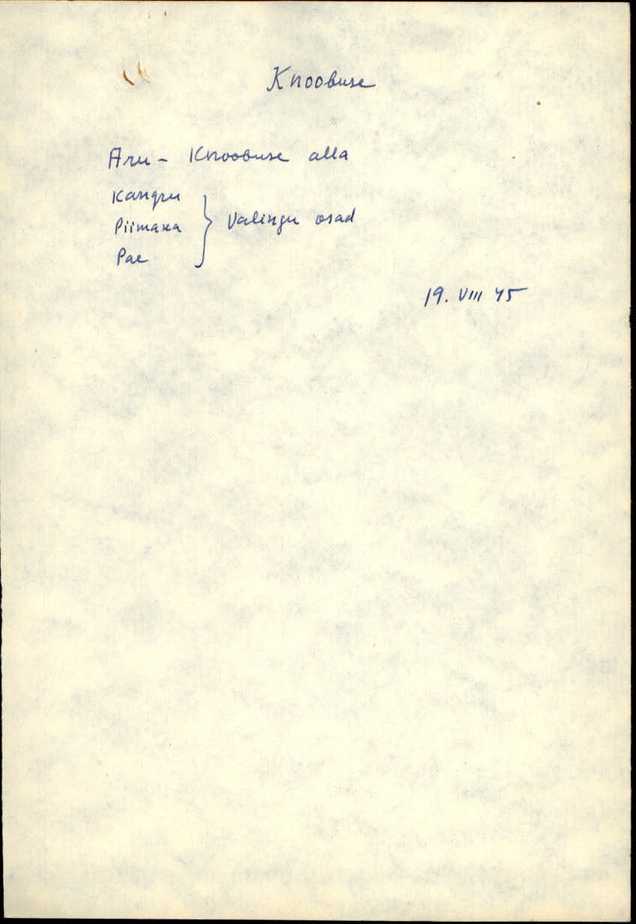 Knoobuse
Aru - Knoobuse alla
Kangru
Piimaxa } Valingu osad
Pae
19. VIII 45